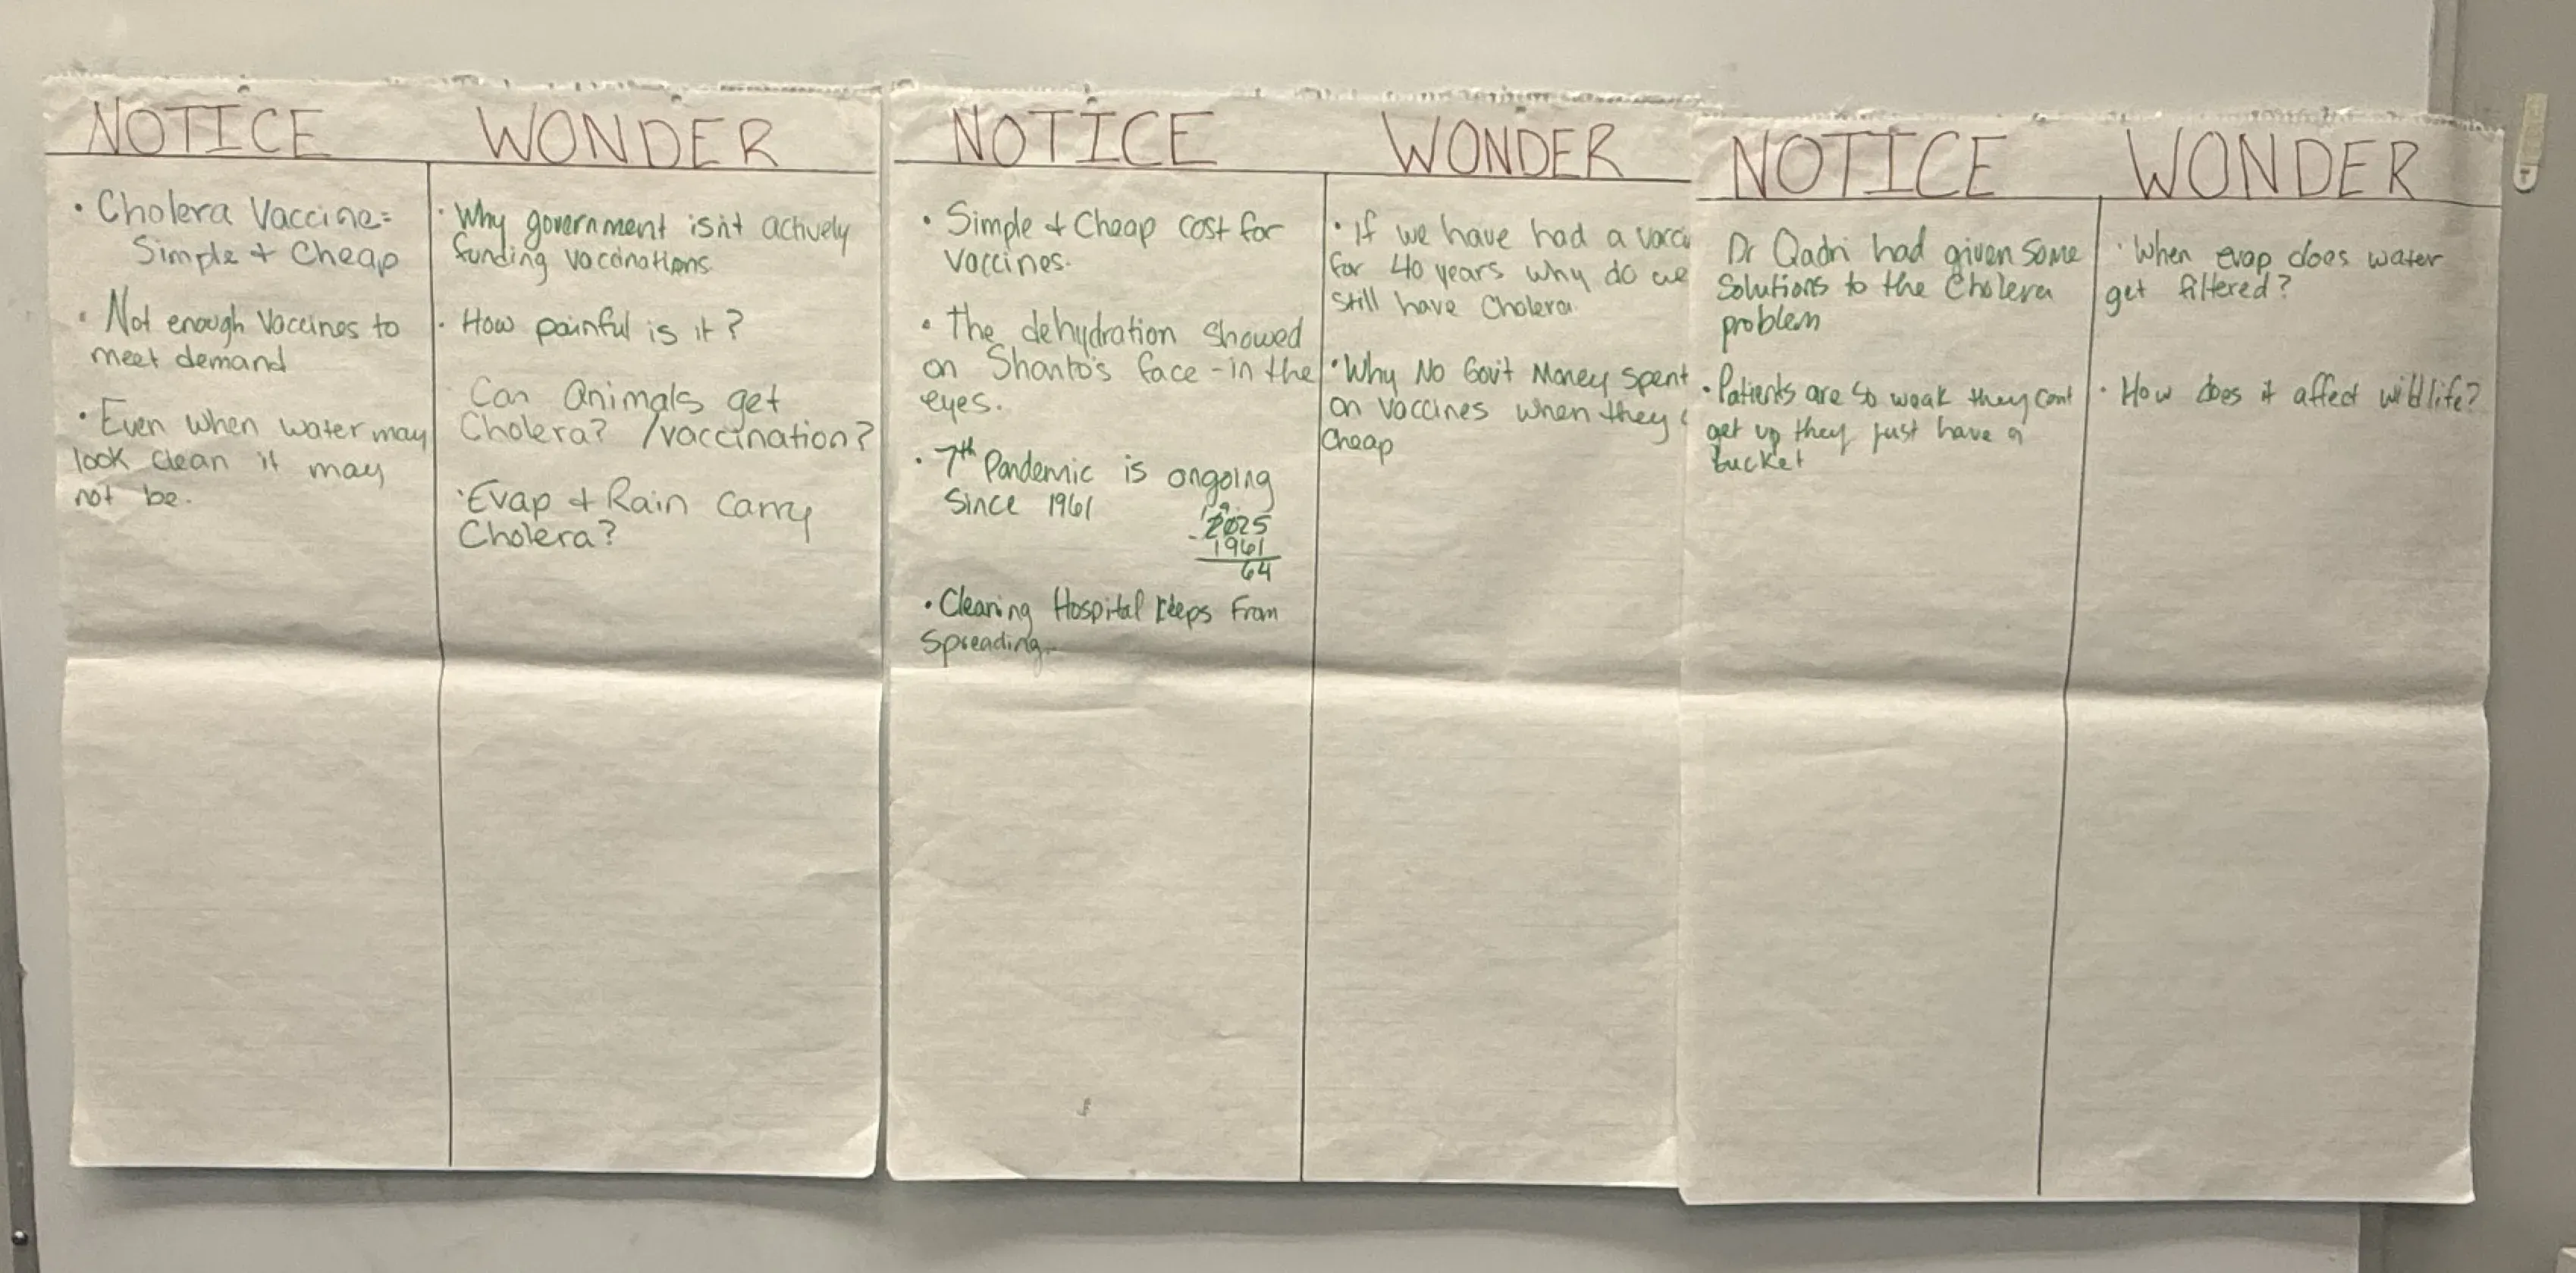 NOTICE WONDER
• Cholera Vaccine=
Simple + Cheap
• Not enough Vaccines to
meet demand
• Even when water may
look clean it may
not be.
• Why government isn't actively
funding vaccinations
• How painful is it?
Can Animals get
Cholera? /vaccination?
• Evap + Rain carry
Cholera?
NOTICE WONDER
• Simple + Cheap cost for
vaccines.
• The dehydration showed
on Shanto's face - in the
eyes.
• 7th Pandemic is ongoing
since 1961
2025
- 1961
64
• Cleaning Hospital keeps from
spreading.
• If we have had a vacci
for 40 years why do we
still have Cholera
• Why No Gov't Money spent
on vaccines when they
cheap
NOTICE WONDER
Dr Qadri had given some
solutions to the Cholera
problem
• Patients are so weak they cant
get up they just have a
bucket
• When evap does water
get filtered?
• How does it affect wildlife?